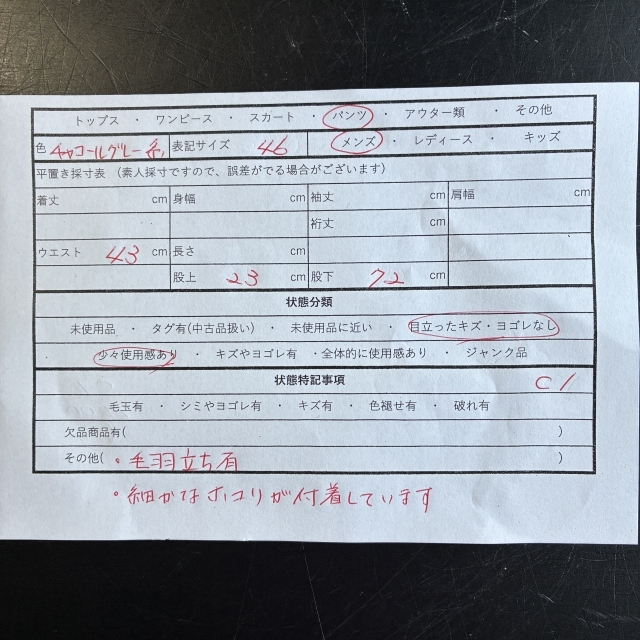 トップス ・ ワンピース ・ スカート ・ パンツ ・ アウター類 ・ その他
色 チャコールグレー系 表記サイズ 46 メンズ ・ レディース ・ キッズ
平置き採寸表 （素人採寸ですので、誤差がでる場合がございます）
着丈 cm 身幅 cm 袖丈 cm 肩幅 cm
裄丈 cm
ウエスト 43 cm 長さ cm
股上 23 cm 股下 72 cm
状態分類
未使用品 ・ タグ有(中古品扱い) ・ 未使用品に近い ・ 目立ったキズ・ヨゴレなし
・ 少々使用感あり ・ キズやヨゴレ有 ・全体的に使用感あり ・ ジャンク品
状態特記事項 C1
毛玉有 ・ シミやヨゴレ有 ・ キズ有 ・ 色褪せ有 ・ 破れ有
欠品商品有( )
その他( ・毛羽立ち有 )
・細かなホコリが付着しています